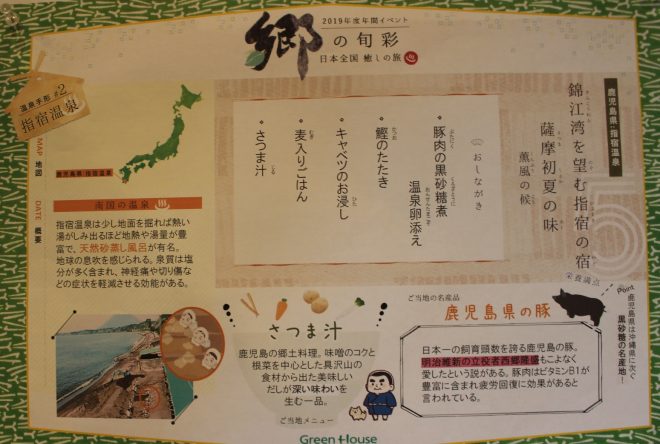 2019年度年間イベント
郷の旬彩
日本全国 癒しの旅
温泉手形 #2
指宿温泉
MAP 地図
鹿児島県/指宿温泉
DATE 概要
南国の温泉
指宿温泉は少し地面を掘れば熱い
湯がしみ出るほど地熱や湯量が豊
富で、天然砂蒸し風呂が有名。
地球の息吹を感じられる。泉質は塩
分が多く含まれ、神経痛や切り傷な
どの症状を軽減させる効能がある。
鹿児島県・指宿温泉
錦江湾を望む指宿の宿
薩摩初夏の味
薫風の候
5
おしながき
豚肉の黒砂糖煮
温泉卵添え
鰹のたたき
キャベツのお浸し
麦入りごはん
さつま汁
さつま汁
鹿児島の郷土料理。味噌のコクと
根菜を中心とした具沢山の
食材から出た美味しい
だしが深い味わいを
生む一品。
ご当地メニュー
ご当地の名産品
鹿児島県の豚
日本一の飼育頭数を誇る鹿児島の豚。
明治維新の立役者西郷隆盛もこよなく
愛したという説がある。豚肉はビタミンB1が
豊富に含まれ疲労回復に効果があると
言われている。
栄養満点
Point
鹿児島県は沖縄県に次ぐ
黒砂糖の名産地！
Green House